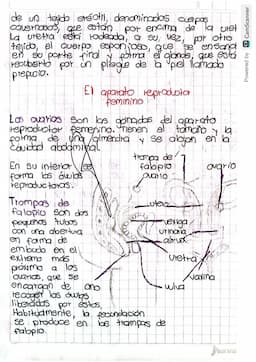 de un tejido eréctil, denominados cuerpos
cavernosos, que están por encima de la uret
La uretra está rodeada, a su vez, por otro
tejido, el cuerpo esponjoso, que se ensancha
en su parte final y forma el glande, que está
recubierto por un pliegue de la piel llamado
prepucio.
El aparato reproductor
femenino
Los ovarios son las gónadas del aparato
reproductor femenino. Tienen el tamaño y la
forma de una almendra y se alojan en la
cavidad abdominal.
En su interior se
forma los óvulos
reproductoras.
Trompas de
falopio son dos
pequeños tubos
con una abertura
en forma de
embudo en el
extremo más
próximo a los
ovarios, que se
encargan de
recoger los óvulos
liberados por estos.
Habitualmente, la fecundación
se produce en las trompas de
falopio.
trompa de
falopio
ovario
ovario
utero
vejiga
urinaria
cérvix
uretra
vagina
vulva
ano
Powered by CamScanner